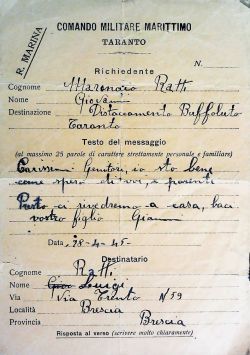 COMANDO MILITARE MARITTIMO
TARANTO
R. MARINA
N.
Richiedente
Cognome Marinaio Ratti
Nome Giovanni
Destinazione Distaccamento Buffoluto
Taranto
Testo del messaggio
(al massimo 25 parole di carattere strettamente personale e familiare)
Carissimi Genitori, io sto bene
come spero di voi, e parenti
Presto ci rivedremo a casa, baci
vostro figlio Gianni
Data, 28-4-45-
Destinatario
Cognome Ratti
Nome Luigi
Via Via Trento N 59
Località Brescia
Provincia Brescia
Risposta al verso (scrivere molto chiaramente)